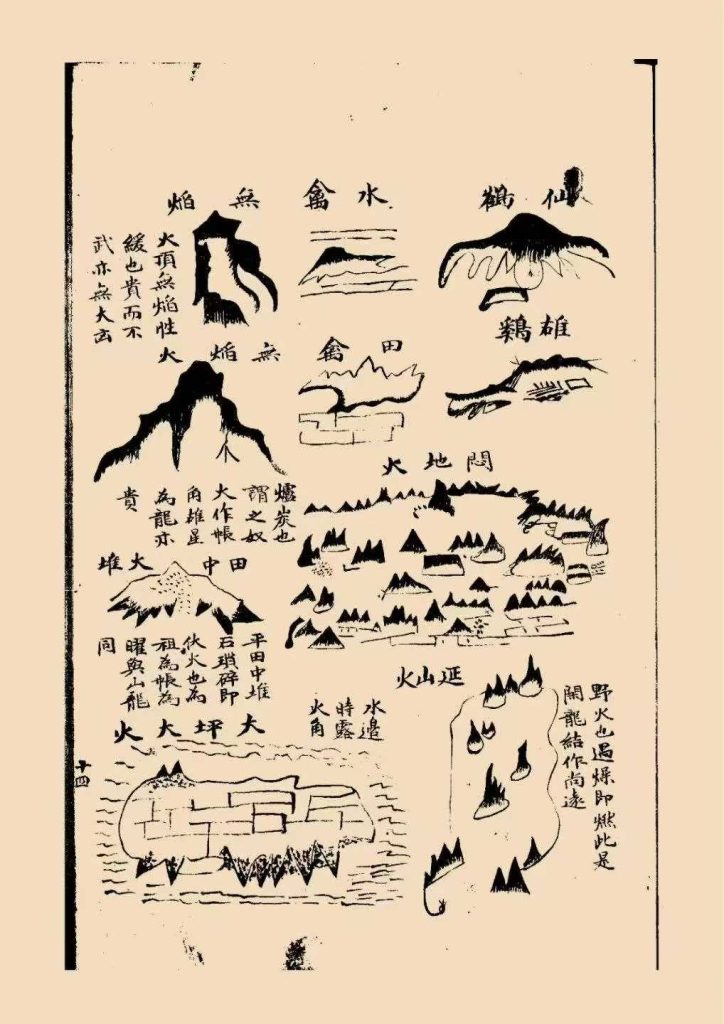 仙鶴
水禽
無焰
火頂無焰性
緩也貴而不
武亦無大凶
雄鷄
田禽
無焰火
悶地火
爐炭也
謂之奴
大作帳
角雄星
為龍亦
貴
田中大堆
平田中堆
石瑣碎即
伏火也為
祖為帳為
曜與山龍
同
延山火
野火也遇燥即燃此是
開龍結作尚遠
大坪大火
水邊
時露
火角
十四